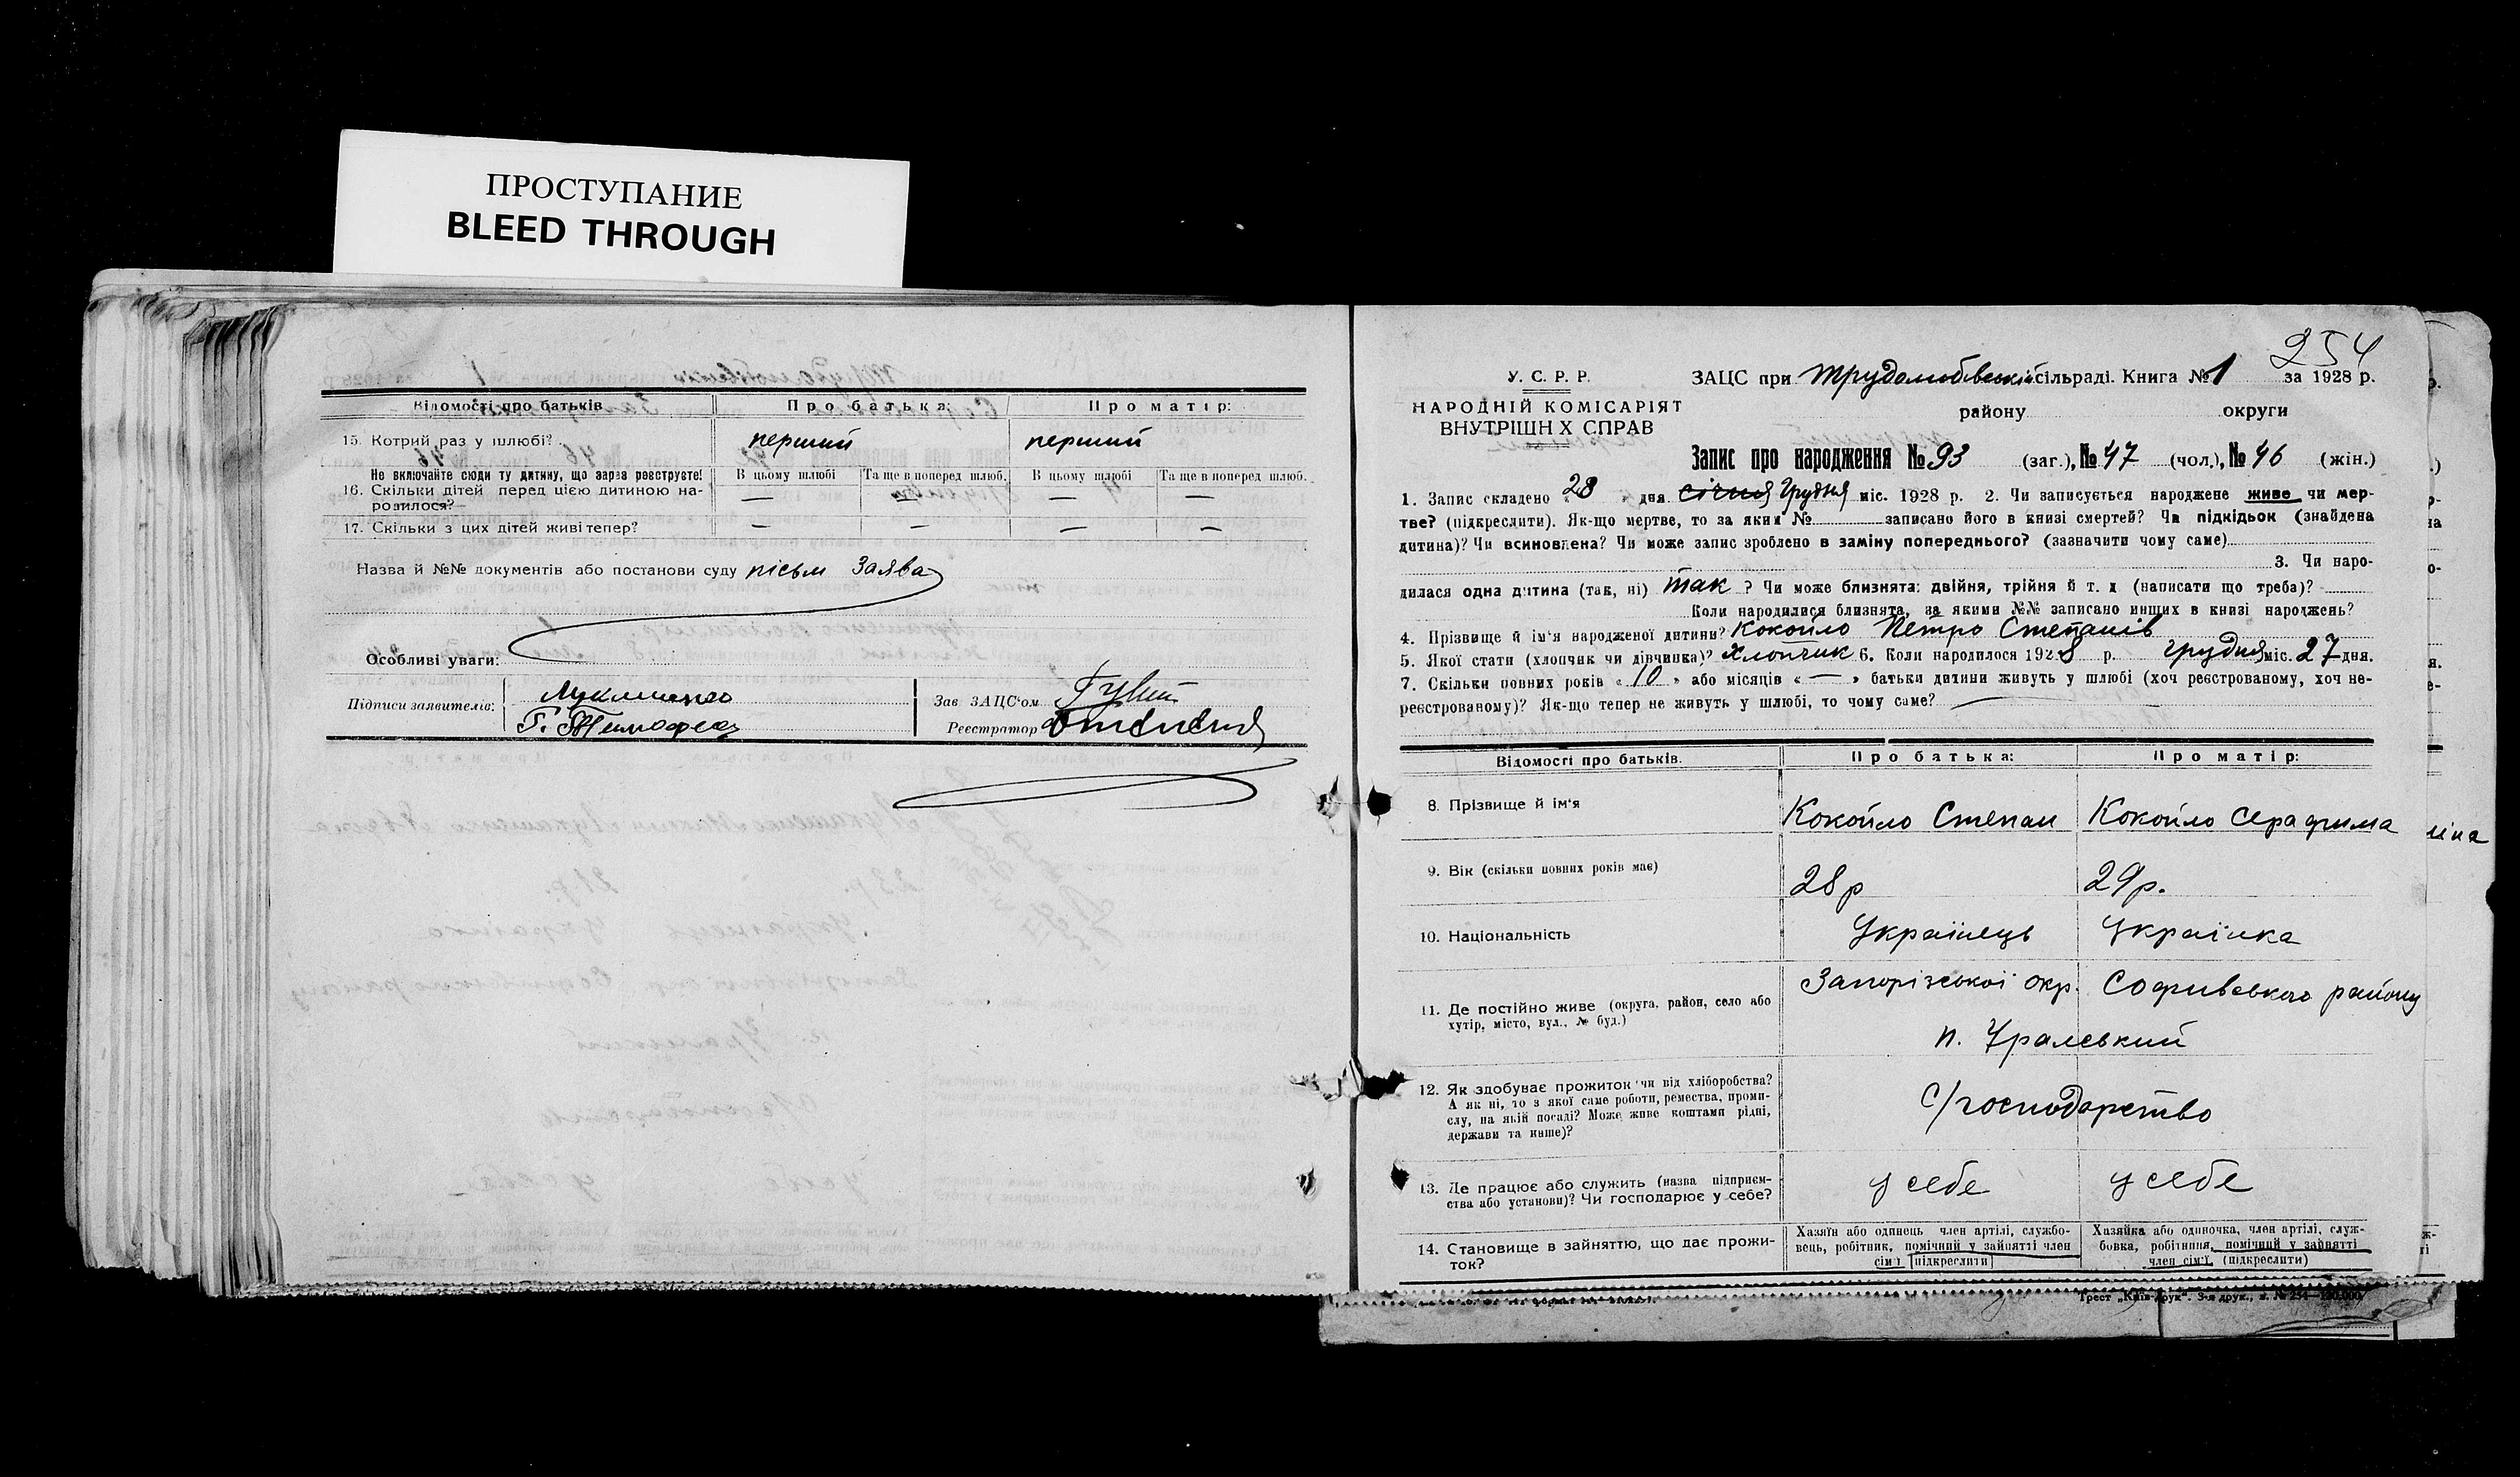 ПРОСТУПАНИЕ
BLEED THROUGH
Відомості про батьків Про батька: Про матір:
15. Котрий раз у шлюбі? перший перший
Не включайте сюди ту дитину, що зараз реєструєте! В цьому шлюбі Та ще в поперед шлюб. В цьому шлюбі Та ще в поперед шлюб.
16. Скільки дітей перед цією дитиною на- — — — —
родилося?
17. Скільки з цих дітей живі тепер? — — — —
Назва й №№ документів або постанови суду пісьм заява
Особливі уваги:
Підписи заявителів: Зав ЗАЦС'ом
Реєстратор
254
У. С. Р. Р.
НАРОДНІЙ КОМІСАРІЯТ
ВНУТРІШН Х СПРАВ
ЗАЦС при Трудолюбівській сільраді. Книга № 1 за 1928 р.
району округи
Запис про народження № 93 (заг.), № 47 (чол.), № 46 (жін.)
1. Запис складено „28 „ дня січня Грудня міс. 1928 р. 2. Чи записується народжене живе чи мер-
тве? (підкреслити). Як-що мертве, то за яким № записано його в книзі смертей? Чи підкідьок (знайдена
дитина)? Чи всиновлена? Чи може запис зроблено в заміну попереднього? (зазначити чому саме)
3. Чи наро-
дилася одна дитина (так, ні) так ? Чи може близнята: двійня, трійня й т. д (написати що треба)?
Коли народилися близнята, за якими №№ записано инших в книзі народжень?
4. Прізвище й ім'я народженої дитини? Кокойло Петро Степанів
5. Якої стати (хлопчик чи дівчинка)? Хлопчик 6. Коли народилося 1928 р. грудня міс. 27 дня.
7. Скільки повних років «10» або місяців «—» батьки дитини живуть у шлюбі (хоч реєстрованому, хоч не-
реєстрованому)? Як-що тепер не живуть у шлюбі, то чому саме? —
Відомості про батьків. Про батька: Про матір:
8. Прізвище й ім'я Кокойло Степан Кокойло Серафима
9. Вік (скільки повних років має) 28 р 29 р.
10. Національність Українець Українка
11. Де постійно живе (округа, район, село або Запорізської окр. Софивського району
хутір, місто, вул., № буд.) п. Уралевький
12. Як здобуває прожиток чи від хліборобства? С/господарство
А як ні, то з якої саме роботи, ремества, проми-
слу, на якій посаді? Може живе коштами рідні,
держави та инше)?
13. Де працює або служить (назва підприєм- у себе у себе
ства або установи)? Чи господарює у себе?
14. Становище в зайняттю, що дає прожи-
ток?
Хазяїн або одинець член артілі, службо-
вець, робітник, помічний у зайнятті член
сім'ї (підкреслити)
Хазяйка або одиночка, член артілі, служ-
бовка, робітниця, помічний у зайнятті
член сім'ї, (підкреслити)
Трест „Київ-Друк". 3-я друк.,